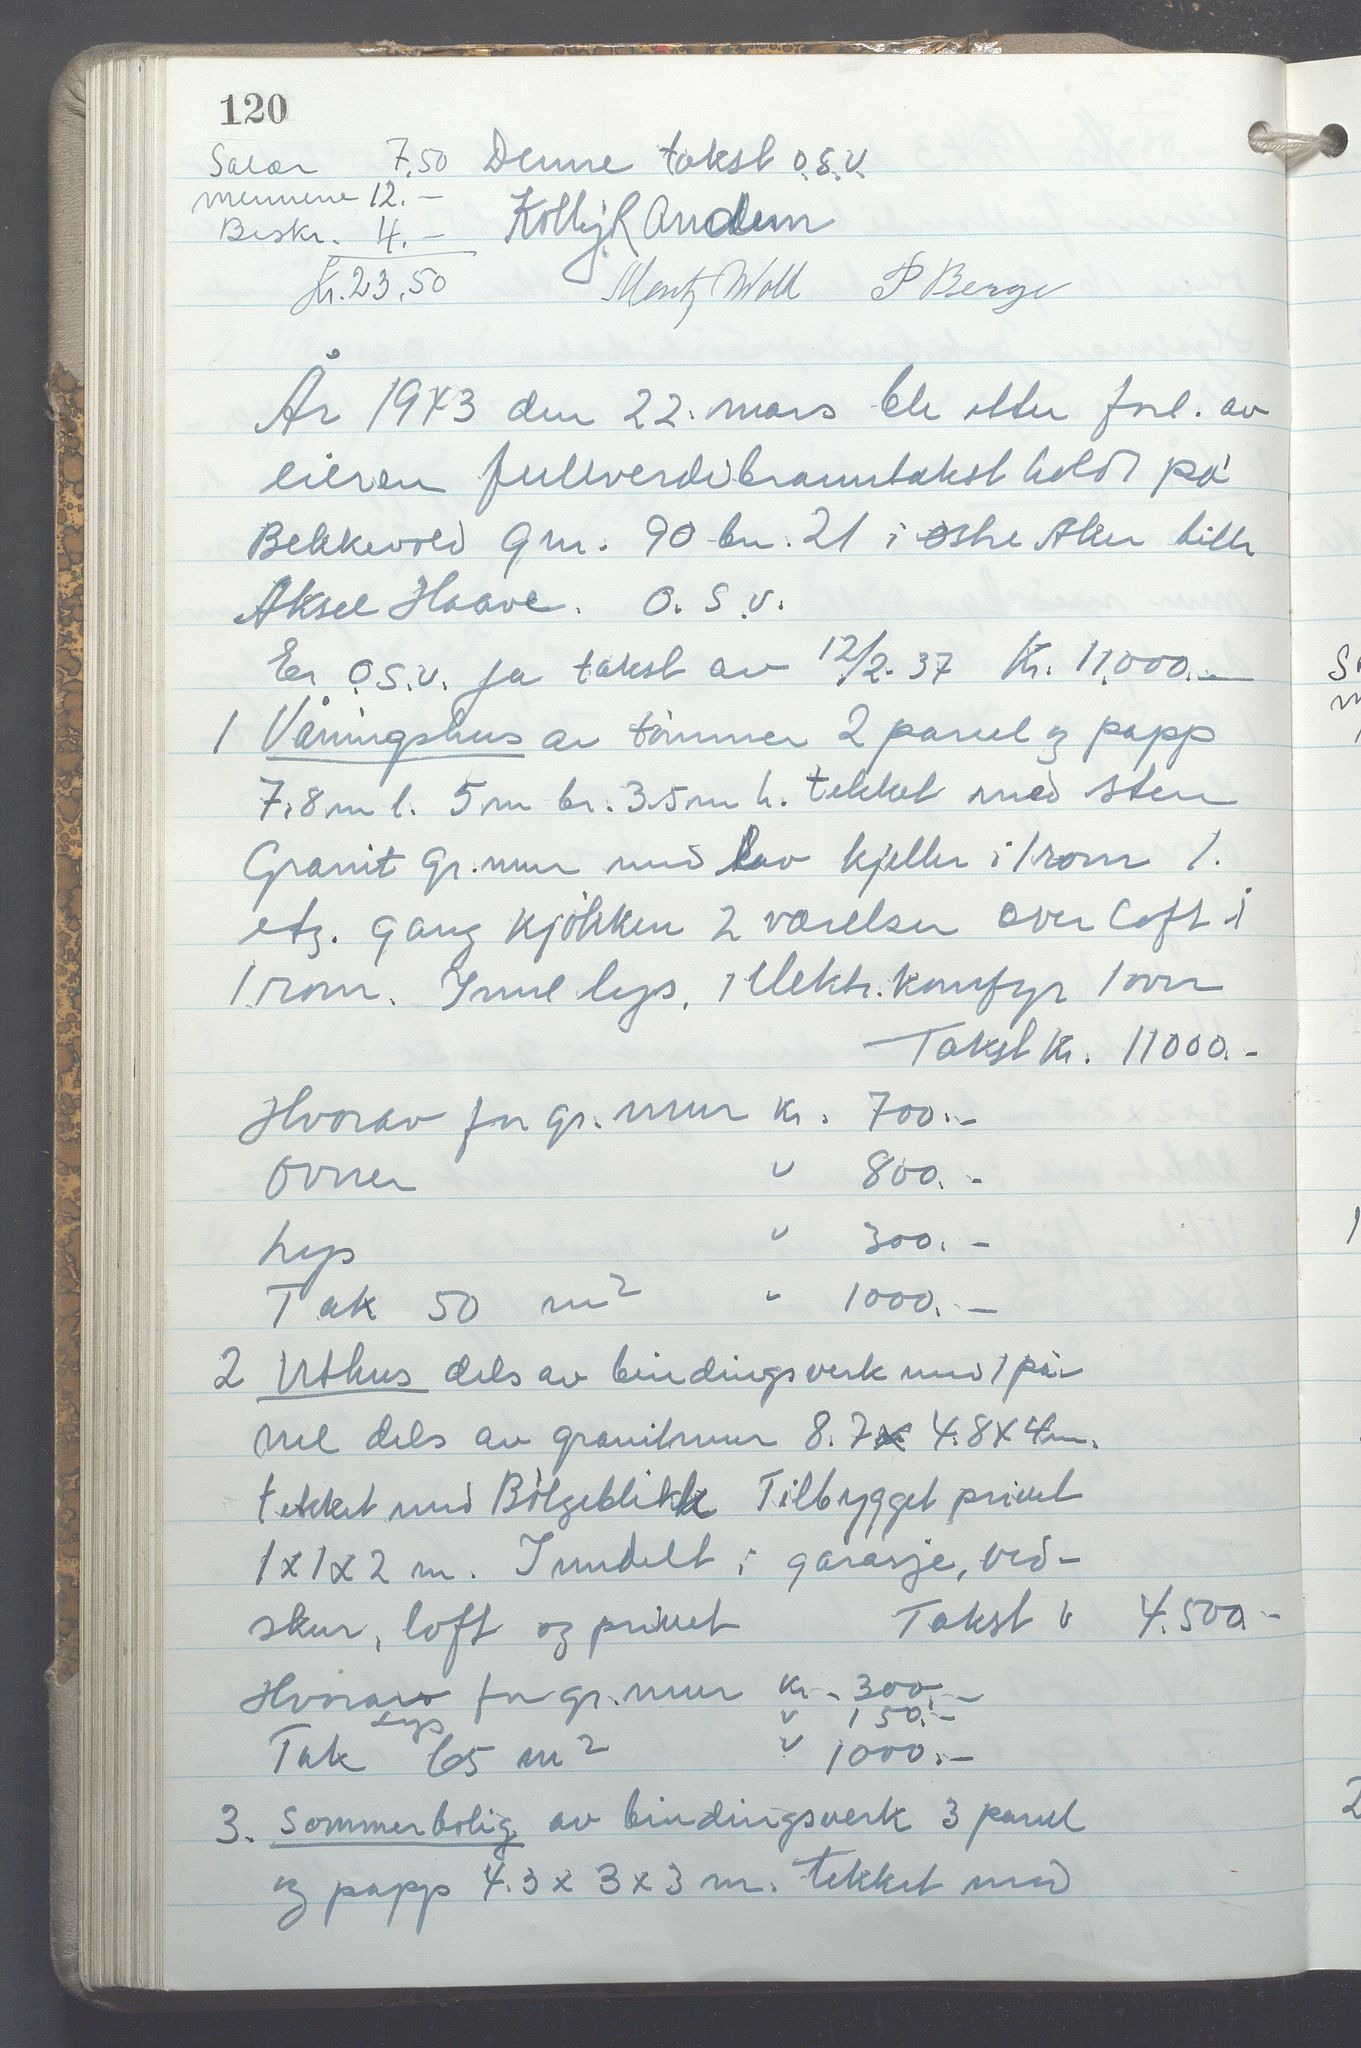 120
Salær 7,50 Denne takst o.s.v.
mennene 12.-
Beskr. 4.-
Kr. 23,50
Moritz Wold P Berge
År 1943 den 22. mars ble etter forl. av
eieren fullverdibranntakst holdt på
Bekkevold gnr. 90 bn. 21 i østre Aker tilh
Aksel Haave. O.s.v.
Er o.s.v. Ja takst av 12/2. 37 Kr. 11,000.-
1 Våningshus av tømmer 2 panel og papp
7,8 m l. 5 m br. 3.5 m h. tekket med sten
Granit gr.mur med lav kjeller i 1 rom 1.
etg. gang kjøkken 2 værelser over loft i
1 rom. Innl lys, 1 elektr. komfyr 1 ovn
Takst Kr. 11000.-
Hvorav for gr. mur Kr. 700.-
Ovner " 800.-
Lys " 300.-
Tak 50 m² " 1000.-
2 Uthus dels av bindingsverk med 1 pa-
nel dels av granitmur 8.7 x 4.8 x 4 m.
tekket med Bølgeblikk Tilbygget privet
1 x 1 x 2 m. Inndelt i garasje, ved-
skur, loft og privet Takst " 4.500.-
Hvorav for gr. mur Kr. 300.-
Lys " 150.-
Tak 65 m² " 1000.-
3. Sommerbolig av bindingsverk 3 panel
og papp 4.3 x 3 x 3 m. tekket med